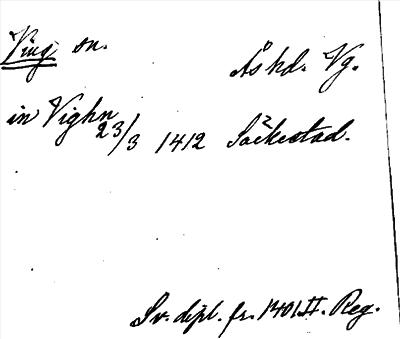 Ving sn. Ås hd. Vg.
in Vighn 23/3 1412 Säckestad.
Sv. dipl. fr. 1401 II. Reg.